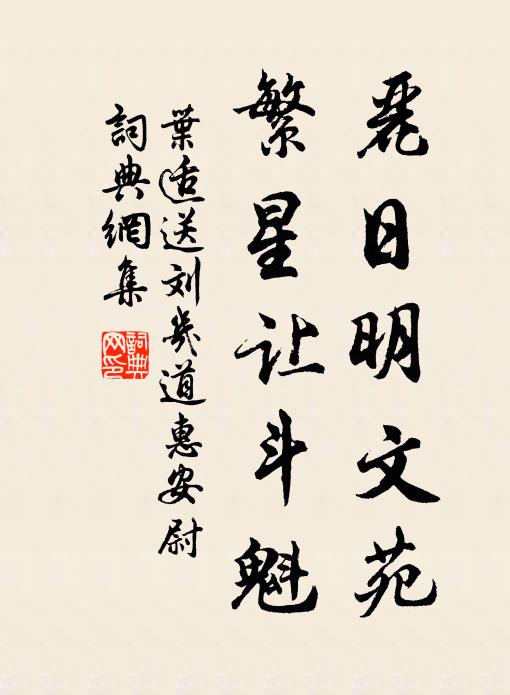 麗日明文苑
繁星让斗魁
葉适送刘幾道惠安尉
詞典網集
詞典
网印